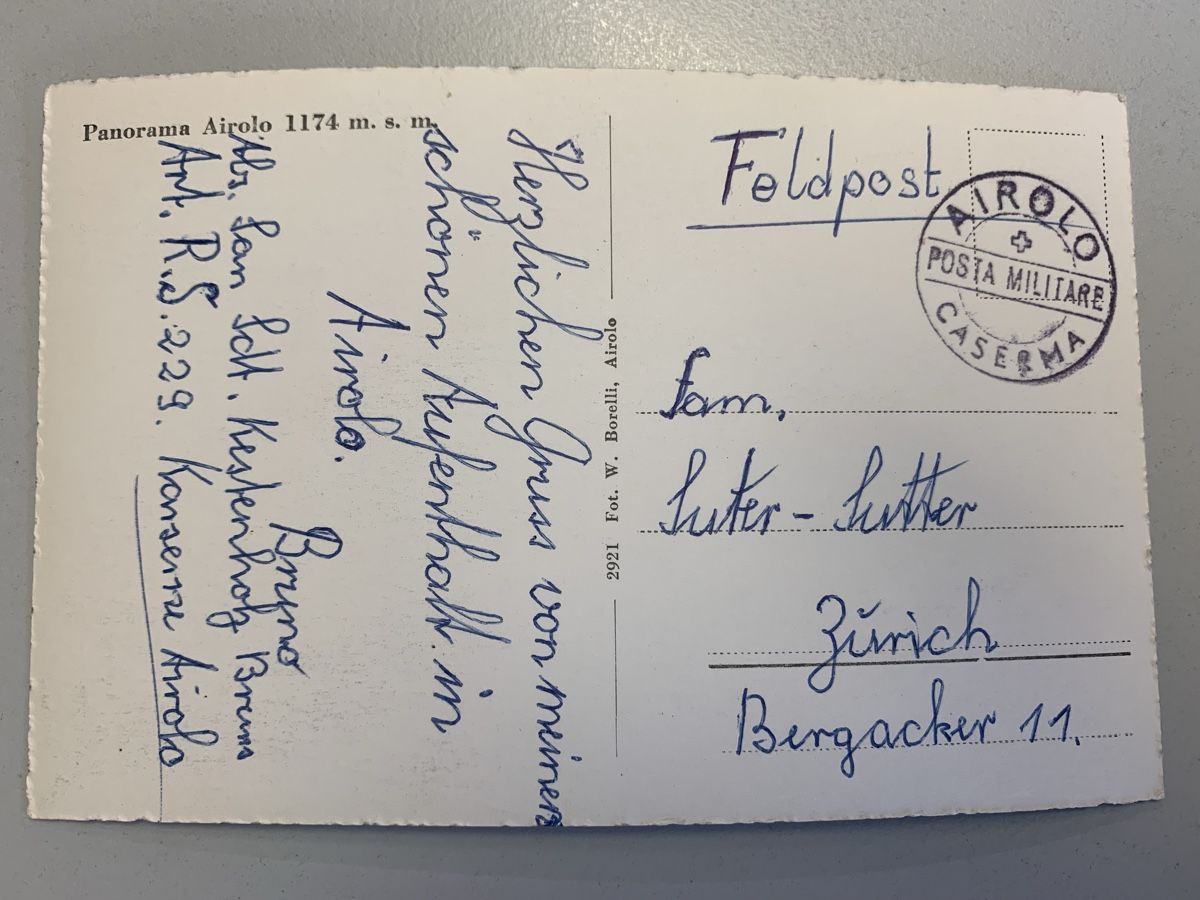 Panorama Airolo 1174 m. s. m.
Herzlichen Gruss von meinen
schönen Aufenthalt in
Airolo.
Bruno
Abs. San Sdt. Kestenholz Bruno
Art. R.S. 229. Kaserne Airolo
2921 Fot. W. Borelli, Airolo
Feldpost
AIROLO
POSTA MILITARE
CASERMA
Fam.
Suter - Sutter
Zürich
Bergacker 11.